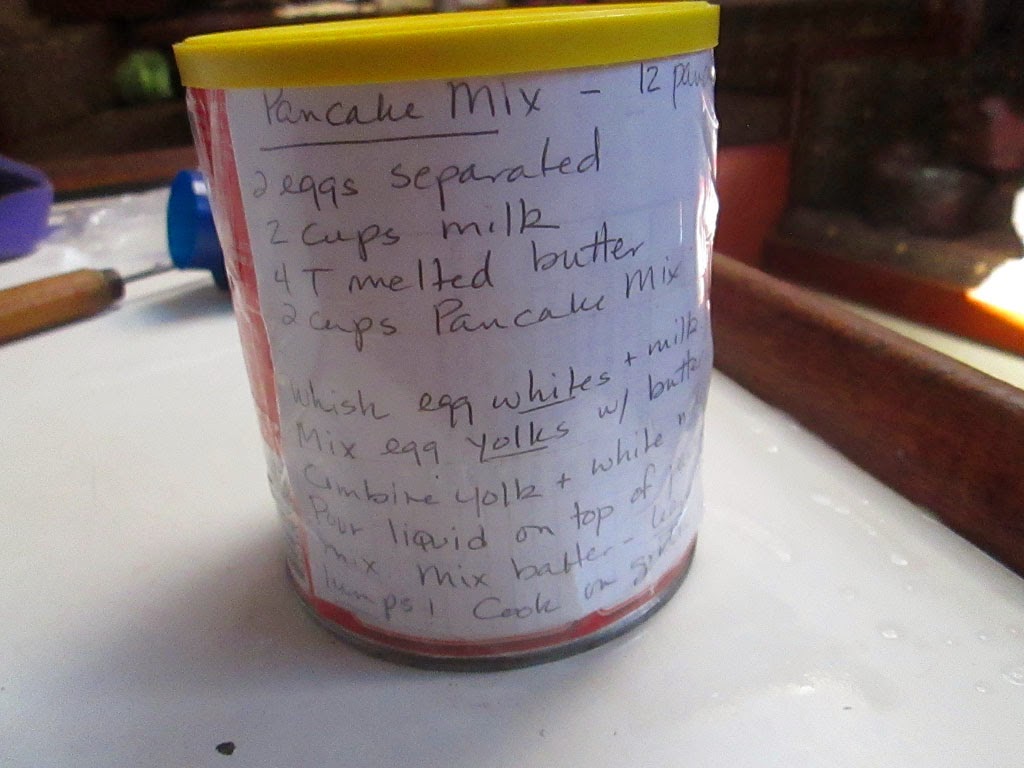 Pancake Mix - 12
2 eggs separated
2 cups milk
4 T melted butter
2 cups Pancake Mix
Whisk egg whites + milk
Mix egg yolks w/ butte
Combine yolk + white
Pour liquid on top of
mix Mix batter -
lumps! Cook on